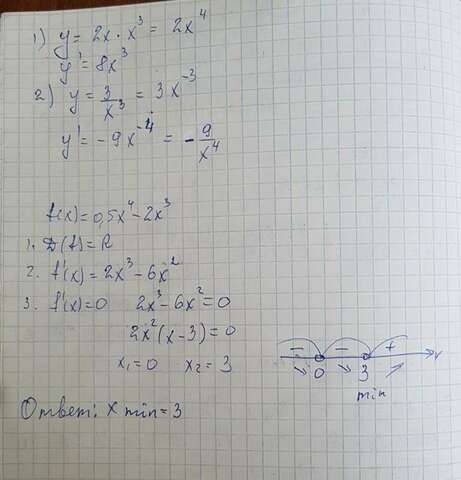 1) y = 2x · x³ = 2x⁴
y' = 8x³
2) y = 3/x³ = 3x⁻³
y' = -9x⁻⁴ = -9/x⁴
f(x) = 0,5x⁴ - 2x³
1. D(f) = R
2. f'(x) = 2x³ - 6x²
3. f'(x) = 0 2x³ - 6x² = 0
2x²(x - 3) = 0
x₁ = 0 x₂ = 3
- - + x
↘ 0 ↘ 3 ↗
min
Ответ: x min = 3